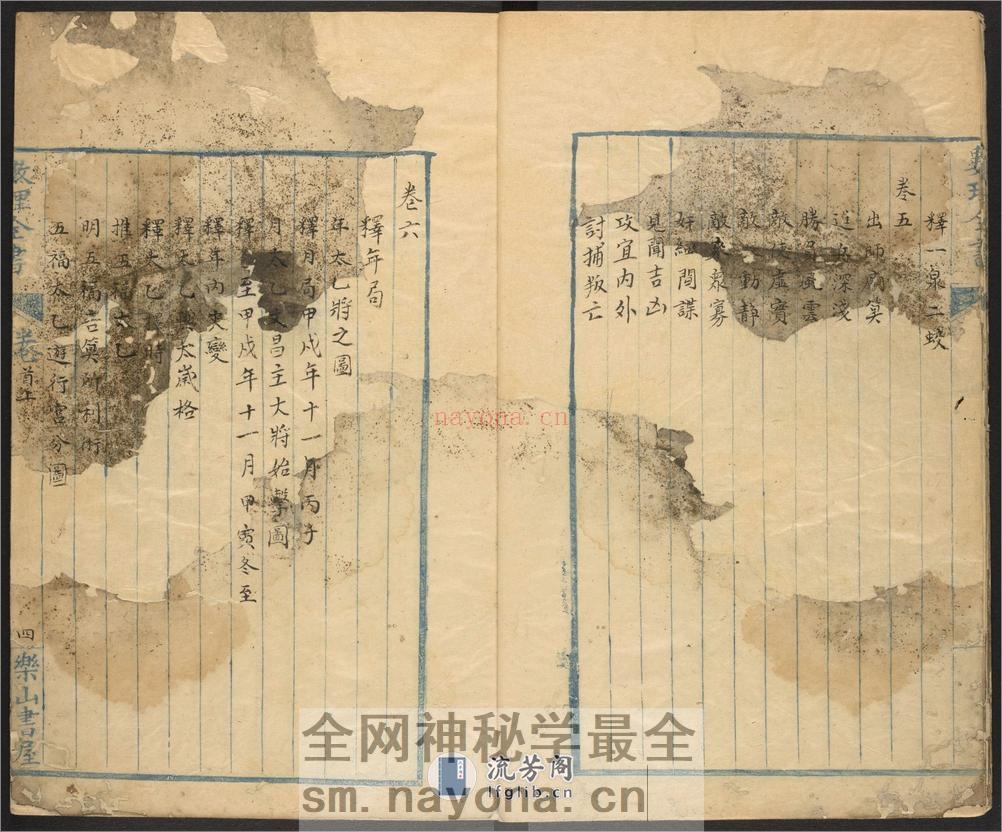 釋一泉二蛟
卷五
出師廟算
進兵深淺
勝負風雲
敵情虛實
敵動靜
敵眾寡
奸細間諜
見聞吉凶
攻宜內外
討捕叛亡
卷六
釋年局
年太乙將之圖
釋月局甲戌年十一月丙子
月太乙文昌主大將始擊圖
至甲戌年十一月甲寅冬至
釋年內災變
釋太乙與太歲格
釋太乙時
推五福太乙
明五福吉算所利
五福太乙遊行宮分圖
數理全書
卷首
四
樂山書屋
nayona.cn
全网神秘学最全
流芳阁
lfglib.cn
sm.nayona.cn